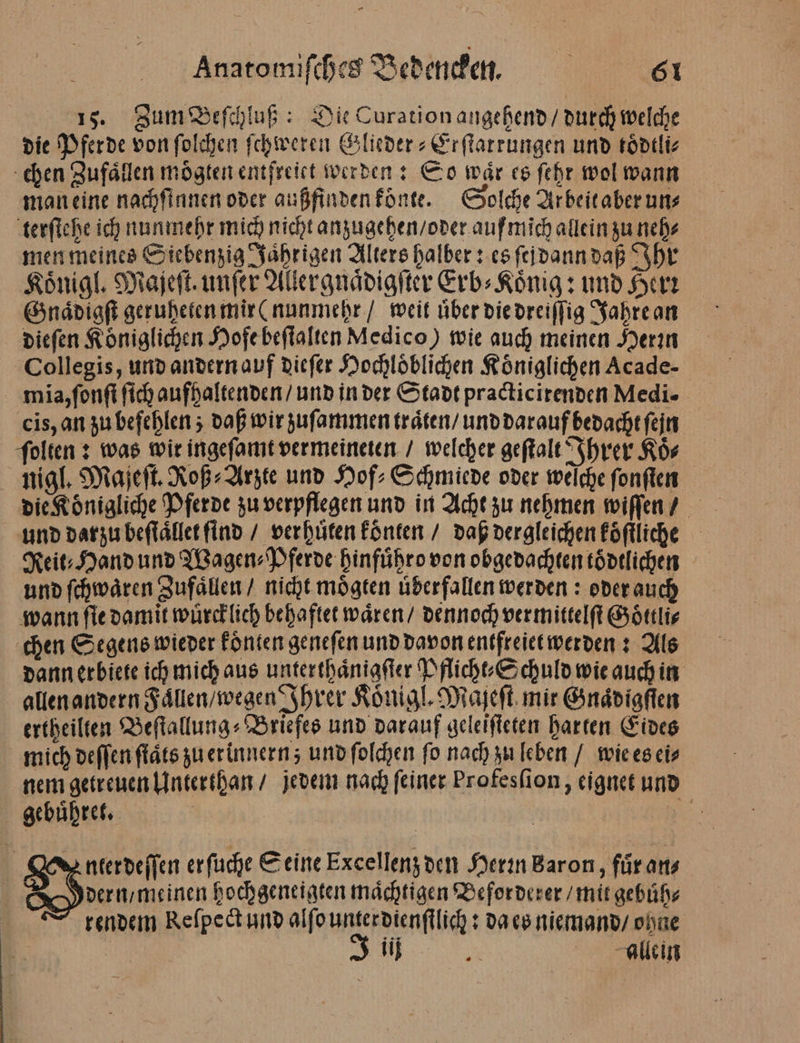 Anatomiſches Bedencken. 61
15. Zum Beſchluß: Die Curation angehend / durch welche
die Pferde von ſolchen ſchweren Glieder⸗Erſtarrungen und toͤdtli⸗
chen Zufaͤllen moͤgten entfreiet werden: So waͤr es ſehr wol wann
man eine nachſinnen oder außfinden koͤnte. Solche Arbeit aber un⸗
terſtehe ich nunmehr mich nicht anzugehen/oder auf mich allein zu neh⸗
men meines Siebenzig Jaͤhrigen Alters halber: es ſej dann daß Ihr
Koͤnigl. Majeſt. unſer Allergnaͤdigſter Erb⸗Koͤnig: und Herꝛ
Gnaͤdigſt geruheten mir (nunmehr / weit uͤber die dreiſſig Jahre an
dieſen Koͤniglichen Hofe beſtalten Medico) wie auch meinen Herꝛn
Collegis, und andern auf dieſer Hochloͤblichen Koͤniglichen Acade-
mia, ſonſt ſich aufhaltenden / und in der Stadt practicirenden Medi-
cis, an zu befehlen; daß wir zuſammen traͤten/ und darauf bedacht ſejn
ſolten: was wir ingeſamt vermeineten / welcher geſtalt Ihrer Koͤ⸗
nigl. Majeſt. Roß⸗Arzte und Hof⸗Schmiede oder welche ſonſten
die Koͤnigliche Pferde zu verpflegen und in Acht zu nehmen wiſſen /
und darzu beſtaͤllet ſind / verhuͤten koͤnten / daß dergleichen koͤſtliche
Reit⸗Hand und Wagen⸗Pferde hinfuͤhro von obgedachten toͤdtlichen
und ſchwaͤren Zufaͤllen / nicht moͤgten uͤberfallen werden: oder auch
wann ſie damit wuͤrcklich behaftet waͤren / dennoch vermittelſt Goͤttli⸗
chen Segens wieder koͤnten geneſen und davon entfreiet werden: Als
dann erbiete ich mich aus unterthaͤnigſter Pflicht⸗Schuld wie auch in
allen andern Faͤllen/wegen Ihrer Koͤnigl. Majeſt. mir Gnaͤdigſten
ertheilten Beſtallung⸗Briefes und darauf geleiſteten harten Eides
mich deſſen ſtaͤts zu erinnern; und ſolchen ſo nach zu leben / wie es ei⸗
nem getreuen Unterthan / jedem nach ſeiner Profesſion, eignet und
gebuͤhret.
Unterdeſſen erſuche Seine Excellenz den Herꝛn Baron, fuͤr an⸗
dern/meinen hochgeneigten maͤchtigen Beforderer / mit gebuͤh⸗
rendem Reſpect und alſo unterdienſtlich: da es niemand/ ohne
J iij allein